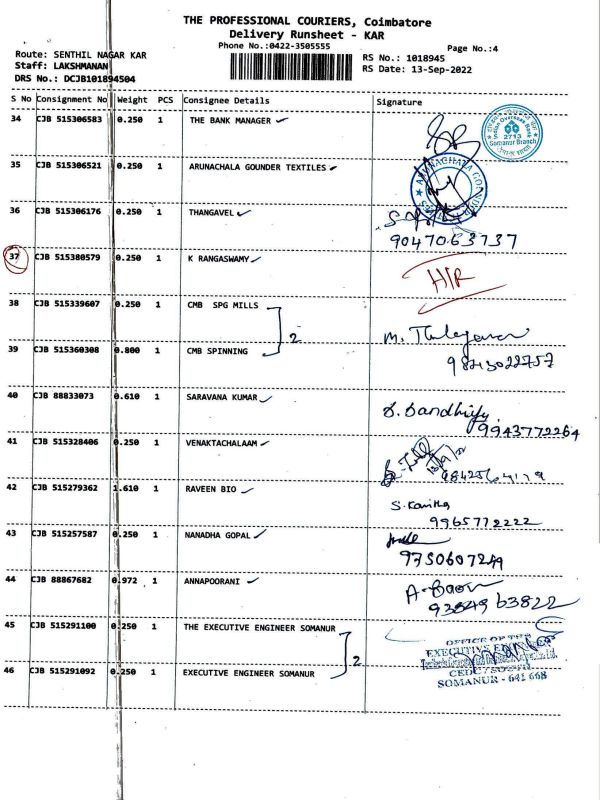 THE PROFESSIONAL COURIERS, Coimbatore
Delivery Runsheet - KAR
Phone No.:0422-3505555
Page No.:4
Route: SENTHIL NAGAR KAR
RS No.: 1018945
Staff: LAKSHMANAN
RS Date: 13-Sep-2022
DRS No.: DCJB101894504
S No Consignment No Weight PCS Consignee Details Signature
34 CJB 515306583 0.250 1 THE BANK MANAGER
2713
Somanur Branch
35 CJB 515306521 0.250 1 ARUNACHALA GOUNDER TEXTILES
36 CJB 515306176 0.250 1 THANGAVEL
9047063737
37 CJB 515380579 0.250 1 K RANGASWAMY
H/R
38 CJB 515339607 0.250 1 CMB SPG MILLS
2
39 CJB 515360308 0.800 1 CMB SPINNING
9843022757
40 CJB 88833073 0.610 1 SARAVANA KUMAR
9943772264
41 CJB 515328406 0.250 1 VENAKTACHALAAM
42 CJB 515279362 1.610 1 RAVEEN BIO
S. Kavitha
9965772222
43 CJB 515257587 0.250 1 NANADHA GOPAL
9750607249
44 CJB 88867682 0.972 1 ANNAPOORANI
9384963822
45 CJB 515291100 0.250 1 THE EXECUTIVE ENGINEER SOMANUR
2
OFFICE OF THE
EXECUTIVE ENGINEER
46 CJB 515291092 0.250 1 EXECUTIVE ENGINEER SOMANUR
SOMANUR - 641 668